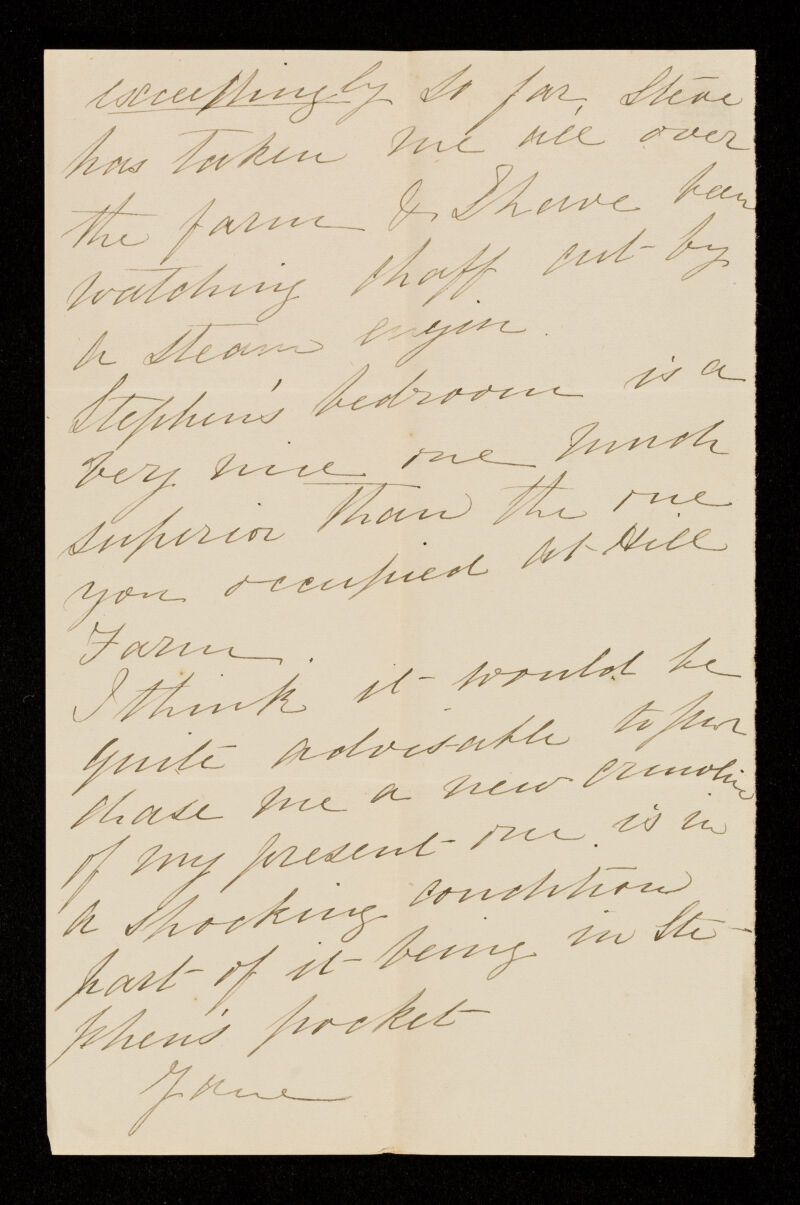 exceedingly so far, Steve
has taken me all over
the farm & I have been
watching chaff cut by
a steam engin.
Stephen's bedroom is a
very nice one much
superior than the one
you occupied at Hill
Farm.
I think it would be
quite advisable to pur
chase me a new crinoline
of my present one is in
a shocking condition
part of it being in Ste-
phen's pocket
Jane